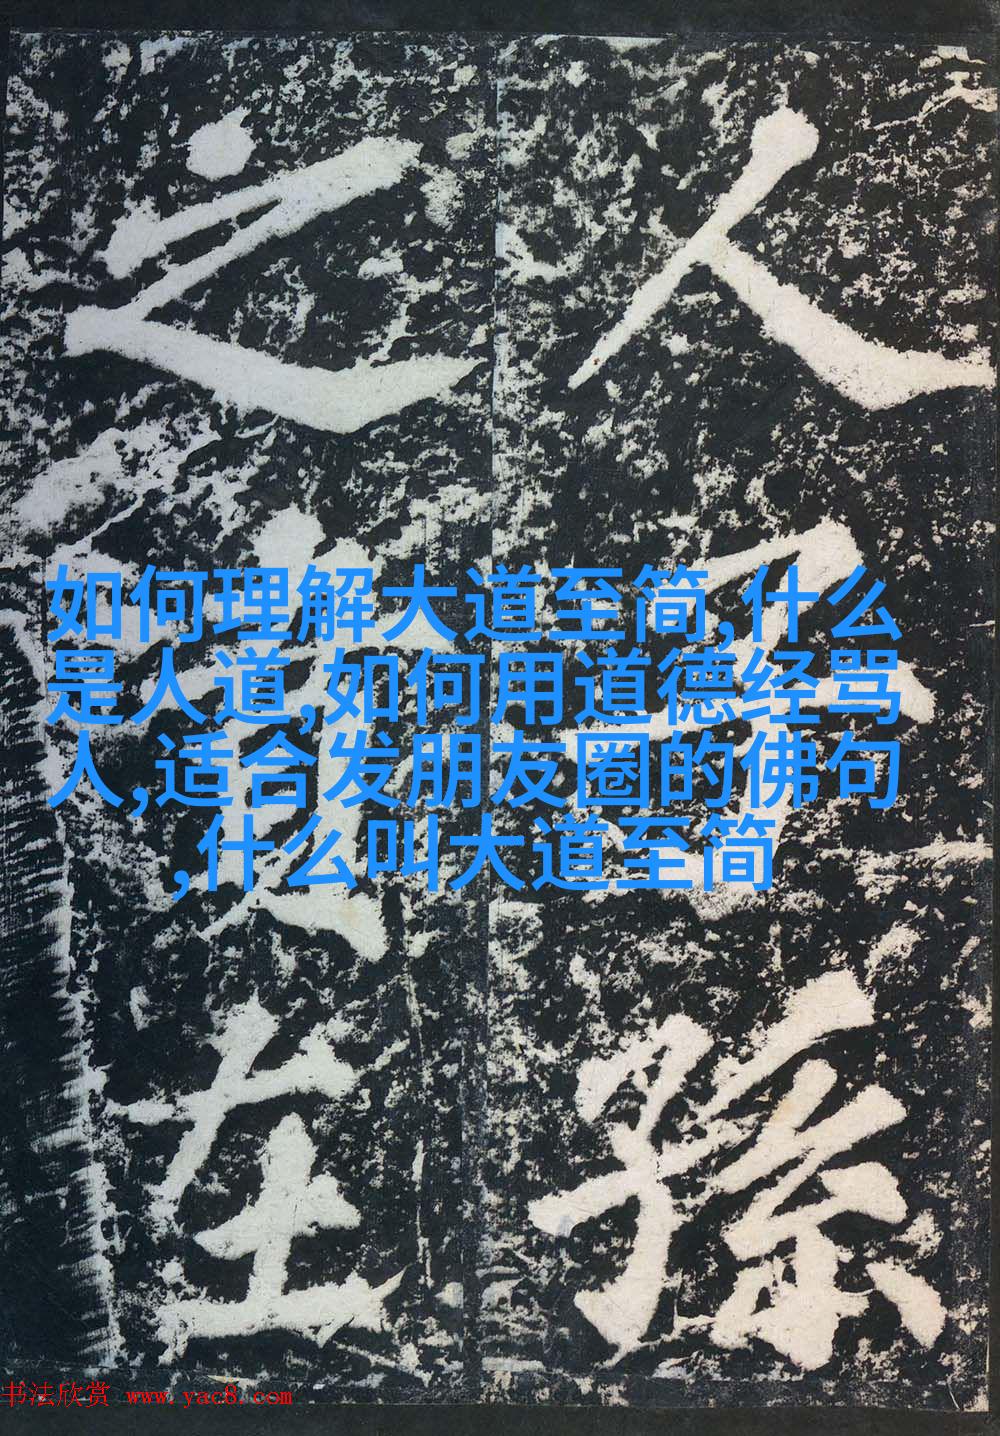 人孫
之在
如何理解大道至简,什么
是人道,如何用道德经骂
人,适合发朋友圈的佛句
,什么叫大道至简
书法欣赏 www.yac8.com